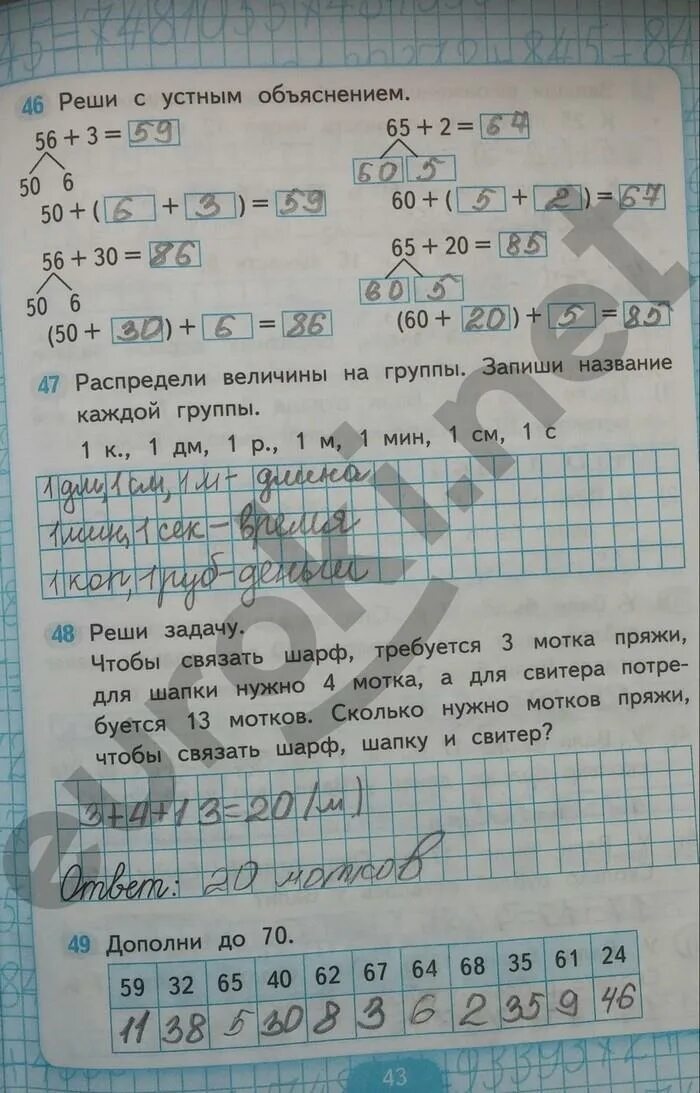 46 Реши с устным объяснением.
56 + 3 = 59
50 6
50 + ( 6 + 3 ) = 59
65 + 2 = 67
60 5
60 + ( 5 + 2 ) = 67
56 + 30 = 86
50 6
(50 + 30 ) + 6 = 86
65 + 20 = 85
60 5
(60 + 20 ) + 5 = 85
47 Распредели величины на группы. Запиши название
каждой группы.
1 к., 1 дм, 1 р., 1 м, 1 мин, 1 см, 1 с
1 дм, 1 см, 1 м - длина
1 мин, 1 сек - время
1 коп, 1 руб - деньги
48 Реши задачу.
Чтобы связать шарф, требуется 3 мотка пряжи,
для шапки нужно 4 мотка, а для свитера потре-
буется 13 мотков. Сколько нужно мотков пряжи,
чтобы связать шарф, шапку и свитер?
3+4+13=20 (м)
Ответ: 20 мотков
49 Дополни до 70.
59 32 65 40 62 67 64 68 35 61 24
11 38 5 30 8 3 6 2 35 9 46
43
euroki.net